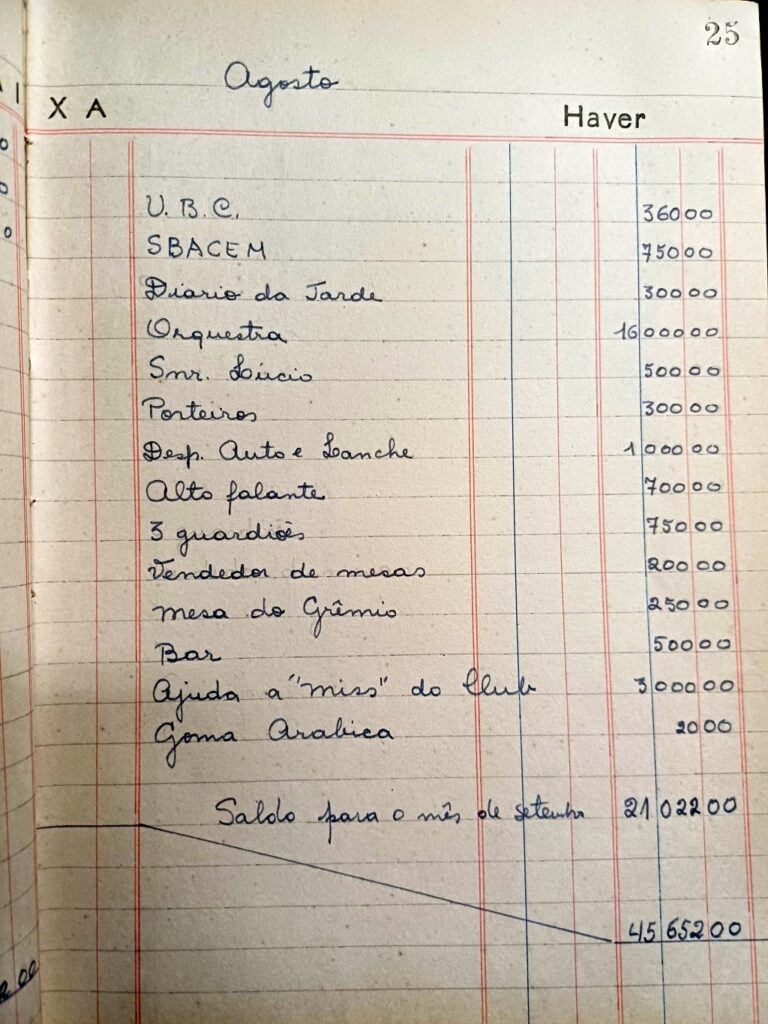 25
Agosto
X A Haver
U. B. C. 36000
SBACEM 75000
Diario da Tarde 30000
Orquestra 1600000
Snr. Lúcio 50000
Porteiros 30000
Desp. Auto e Lanche 100000
Alto falante 70000
3 guardiões 75000
Vendedor de mesas 20000
Mesa do Grêmio 25000
Bar 50000
Ajuda a "miss" do Club 300000
Goma Arabica 2000
Saldo para o mês de setembro 2102200
4565200